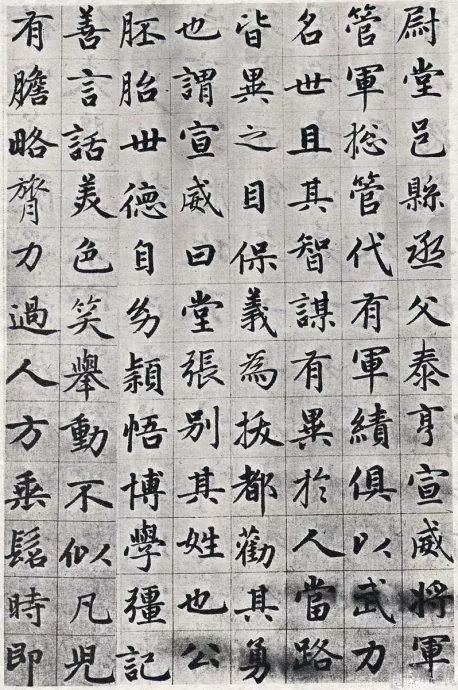 尉堂邑縣丞父泰亨宣威將軍
管軍捴管代有軍績俱以武力
名世且其智謀有異於人當路
皆異之目保義為拔都勸其勇
也謂宣威曰堂張別其姓也公
胚胎世德自幼穎悟博學彊記
善言話美色笑舉動不似凡兒
有膽略膂力過人方垂髫時即